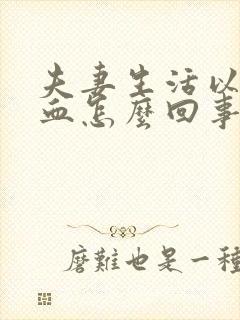 夫妻生活以
血怎麼回事
磨難也是一種